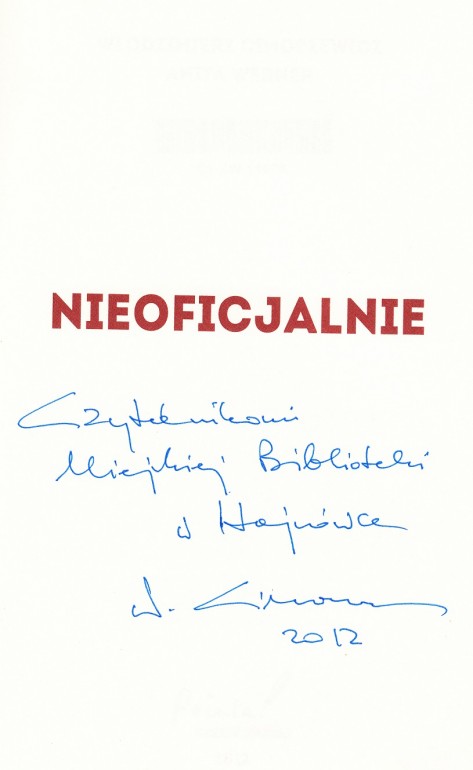 NIEOFICJALNIE
Czytelnikom
Miejskiej Biblioteki
w Hajnówce
W.
2012